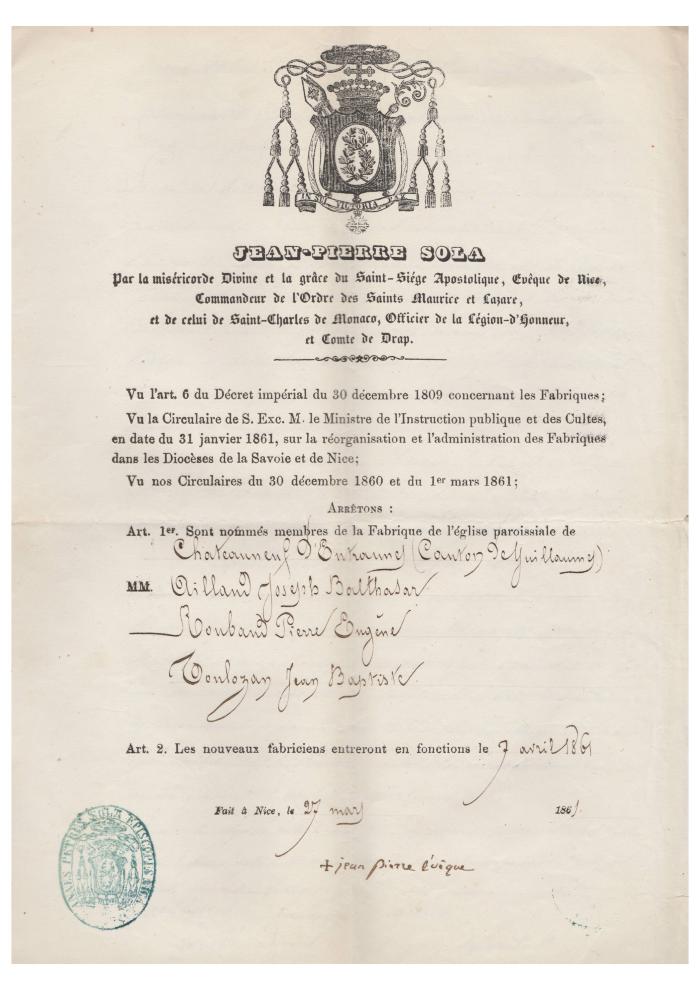 VICTORIA
JEAN-PIERRE SOLA
Par la miséricorde Divine et la grâce du Saint-Siége Apostolique, Evêque de Nice,
Commandeur de l'Ordre des Saints Maurice et Lazare,
et de celui de Saint-Charles de Monaco, Officier de la Légion-d'Honneur,
et Comte de Drap.
Vu l'art. 6 du Décret impérial du 30 décembre 1809 concernant les Fabriques;
Vu la Circulaire de S. Exc. M. le Ministre de l'Instruction publique et des Cultes,
en date du 31 janvier 1861, sur la réorganisation et l'administration des Fabriques
dans les Diocèses de la Savoie et de Nice;
Vu nos Circulaires du 30 décembre 1860 et du 1er mars 1861;
ARRÊTONS :
Art. 1er. Sont nommés membres de la Fabrique de l'église paroissiale de
Chateauneuf D'Entraunes (Canton de Guillaumes)
MM. Ailland Joseph Balthasar
Roubaud Pierre Eugène
Toulozan Jean Baptiste
Art. 2. Les nouveaux fabriciens entreront en fonctions le 7 avril 1861
Fait à Nice, le 27 mars 1861.
+ jean pierre évêque
PETRUS SOLA EPISCOPUS